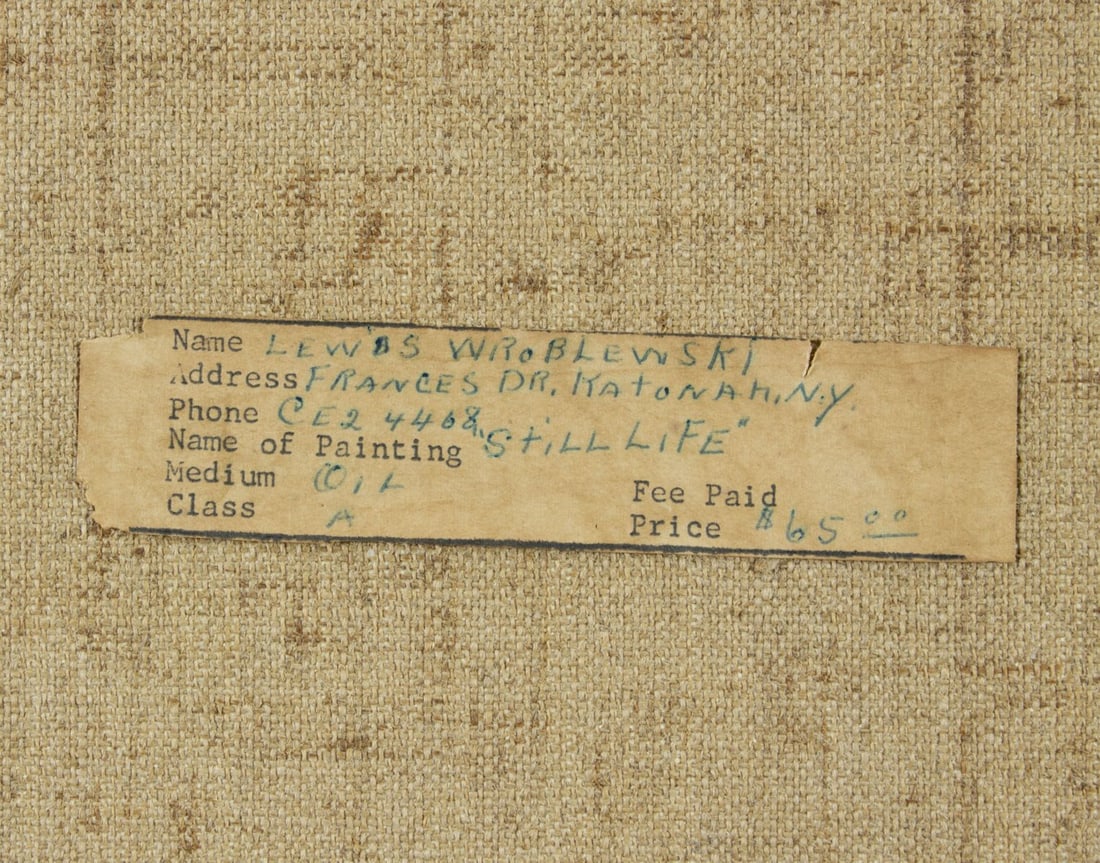 Name LEWIS WROBLEWSKI
Address FRANCES DR. KATONAH, N.Y.
Phone CE2 4468
Name of Painting "STILL LIFE"
Medium OIL
Fee Paid
Class A
Price $65 00